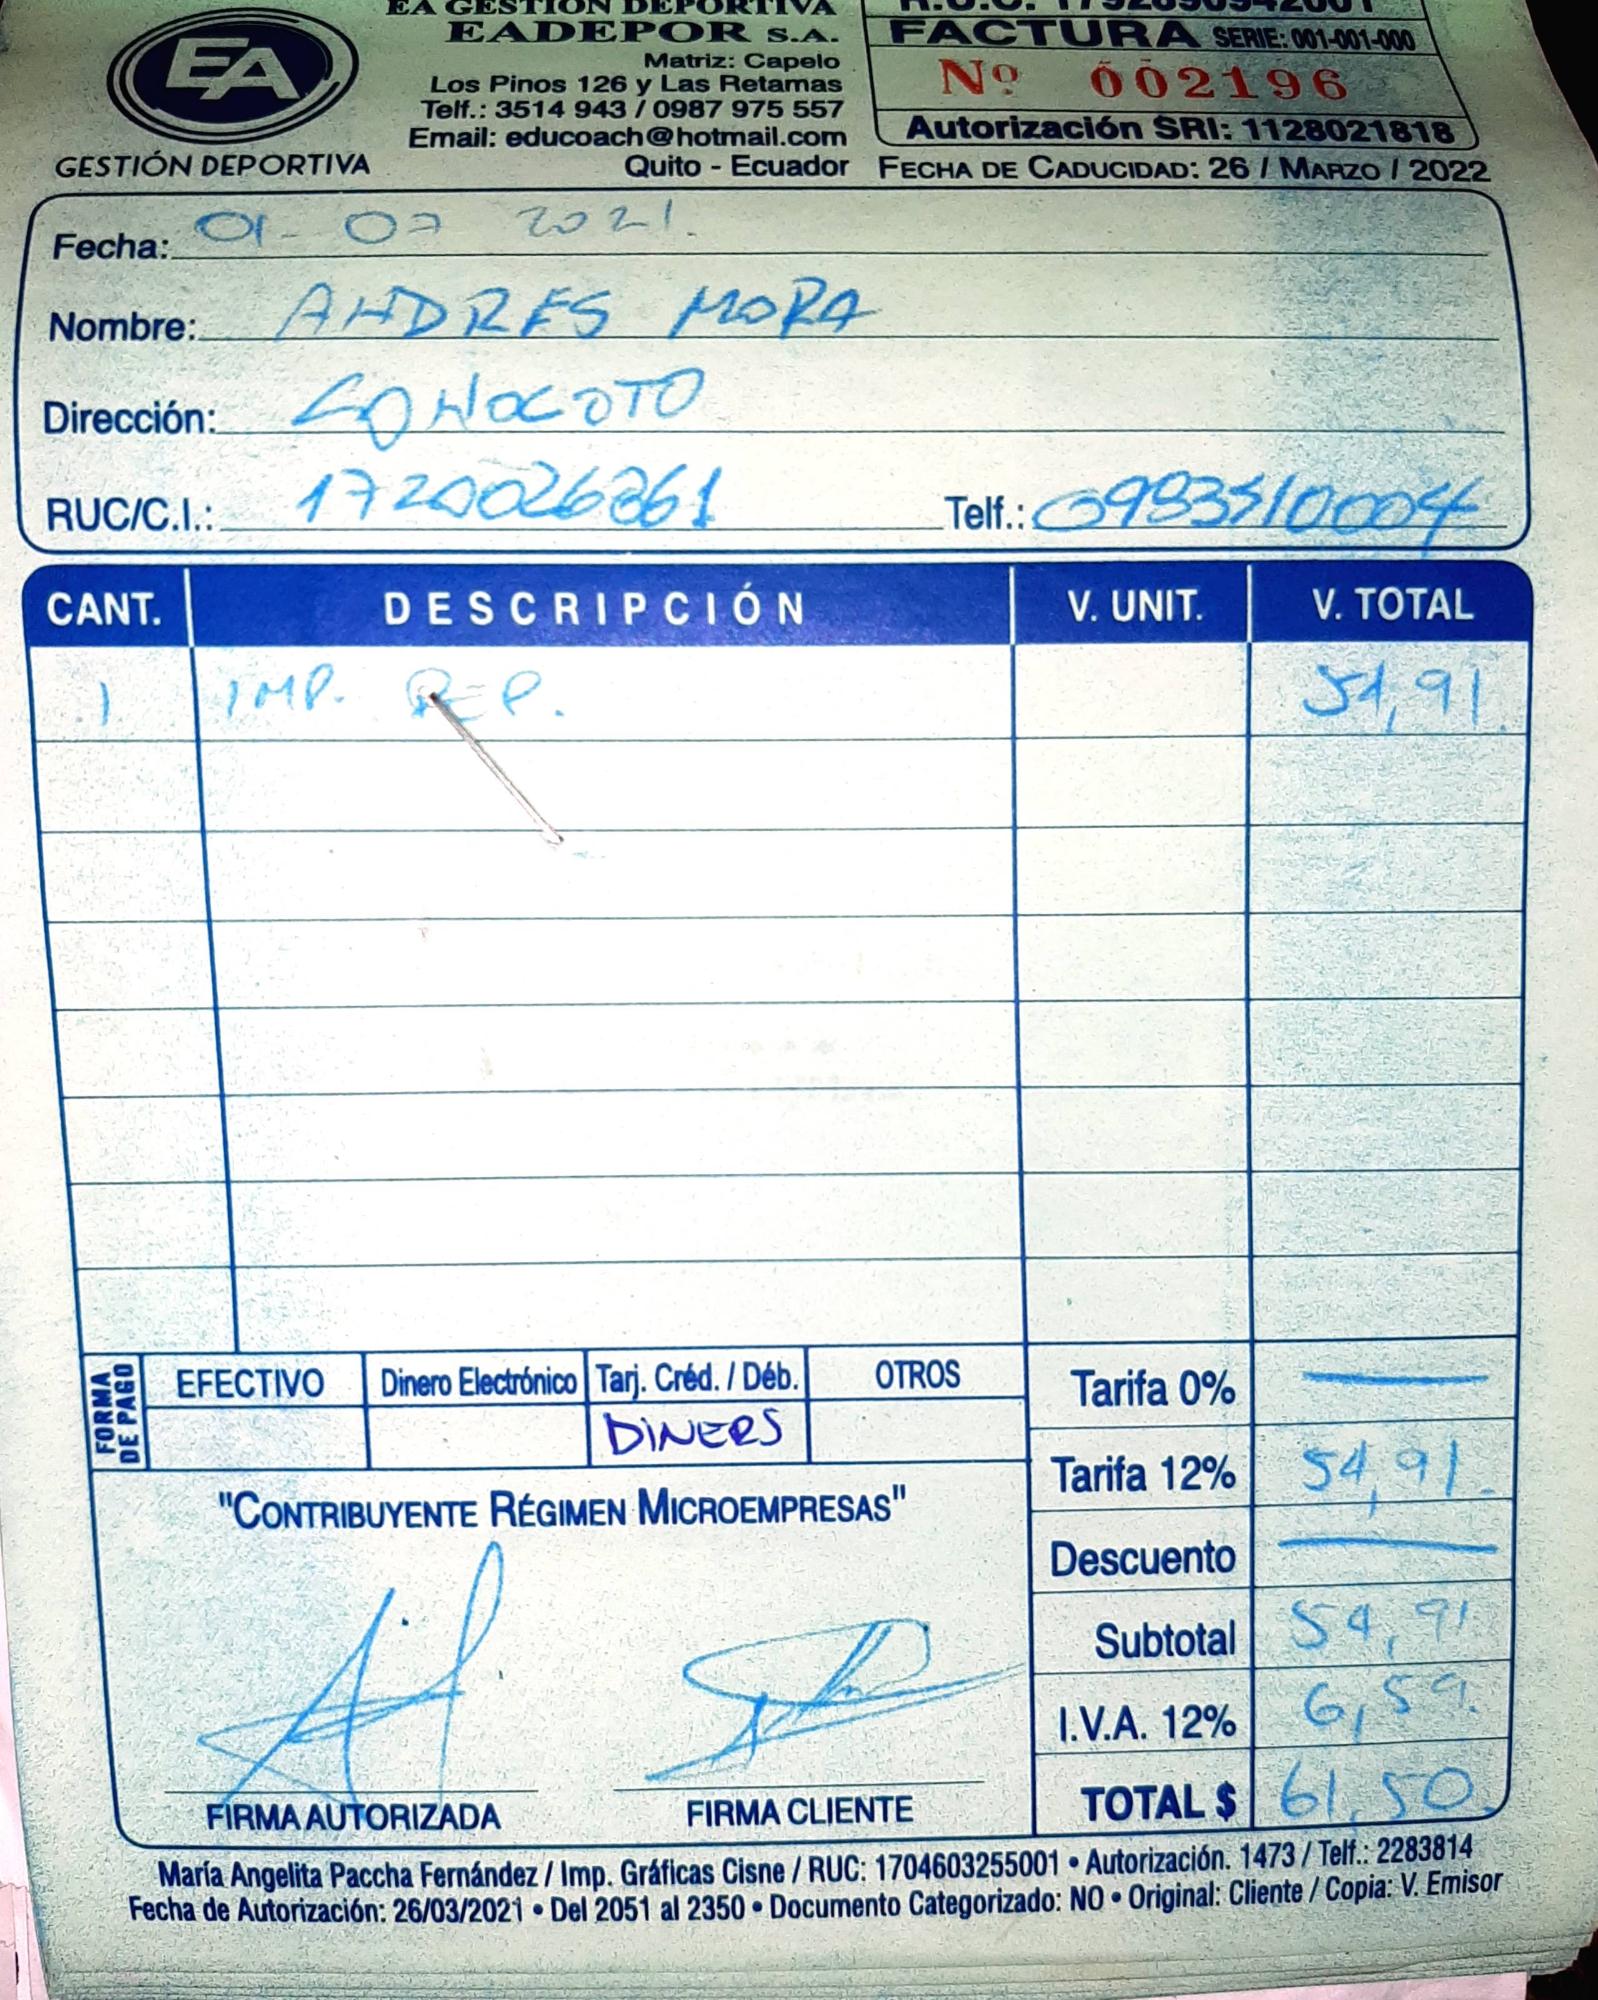 EA GESTIÓN DEPORTIVA
EADEPOR S.A.
Matriz: Capelo
Los Pinos 126 y Las Retamas
Telf.: 3514 943 / 0987 975 557
Email: educoach@hotmail.com
Quito - Ecuador
EA
GESTIÓN DEPORTIVA
FACTURA SERIE: 001-001-000
Nº 002196
Autorización SRI: 1128021818
FECHA DE CADUCIDAD: 26 / MARZO / 2022
Fecha: 01-07 2021.
Nombre: ANDRES MORA
Dirección: CONOCOTO
RUC/C.I.: Telf.:
CANT. DESCRIPCIÓN V. UNIT. V. TOTAL
1 IMP. REP. 54,91
FORMA DE PAGO
EFECTIVO Dinero Electrónico Tarj. Créd. / Déb. OTROS
DINERS
Tarifa 0%
Tarifa 12% 54,91.
Descuento
Subtotal 54,91
I.V.A. 12% 6,59.
TOTAL $ 61,50.
"CONTRIBUYENTE RÉGIMEN MICROEMPRESAS"
FIRMA AUTORIZADA FIRMA CLIENTE
María Angelita Paccha Fernández / Imp. Gráficas Cisne / RUC: 1704603255001 • Autorización. 1473 / Telf.: 2283814
Fecha de Autorización: 26/03/2021 • Del 2051 al 2350 • Documento Categorizado: NO • Original: Cliente / Copia: V. Emisor